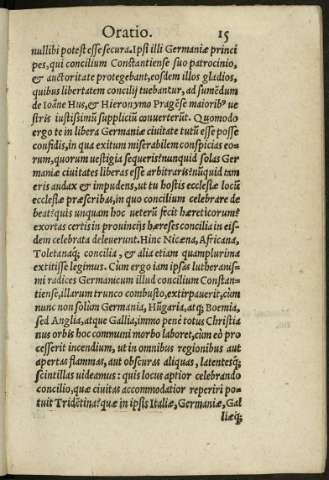 Oratio. 15
nullibi potest esse secura. Ipsi illi Germaniæ princi
pes, qui concilium Constantiense suo patrocinio,
& auctoritate protegebant, eosdem illos gladios,
quibus libertatem concilij tuebantur, ad sumēdum
de Ioāne Hus, & Hieronymo Pragēse maiorib⁹ ue
stris iustissimū suppliciū conuerterūt. Quomodo
ergo te in libera Germaniæ ciuitate tutū esse posse
confidis, in qua exitum miserabilem conspicias eo
rum, quorum uestigia sequeris? nunquid solas Ger
maniæ ciuitates liberas esse arbitraris? nūquid tam
eris audax & impudens, ut tu hostis ecclesiæ locū
ecclesiæ præscribas, in quo concilium celebrare de
beat? quis unquam hoc ueterū fecit hæreticorum?
exortas certis in prouincijs hæreses concilia in eis-
dem celebrata deleuerunt. Hinc Nicæna, Africana,
Toletanaq́; concilia, & alia etiam quamplurima
extitisse legimus. Cùm ergo iam ipsas lutheranis-
mi radices Germanicum illud concilium Constan-
tiense, illarum trunco combusto, extirpauerit, cùm
nunc non solùm Germania, Hūgaria, atq́; Boemia,
sed Anglia, atque Gallia, immo penè totus Christia
nus orbis hoc communi morbo laboret, cùm eò pro
cesserit incendium, ut in omnibus regionibus aut
apertas flammas, aut obscuras aliquas, latentesq́;
scintillas uideamus: quis locus aptior celebrando
concilio, quæ ciuitas accommodatior reperiri po-
tuit Tridētina? quæ in ipsis Italiæ, Germaniæ, Gal
liæq́;